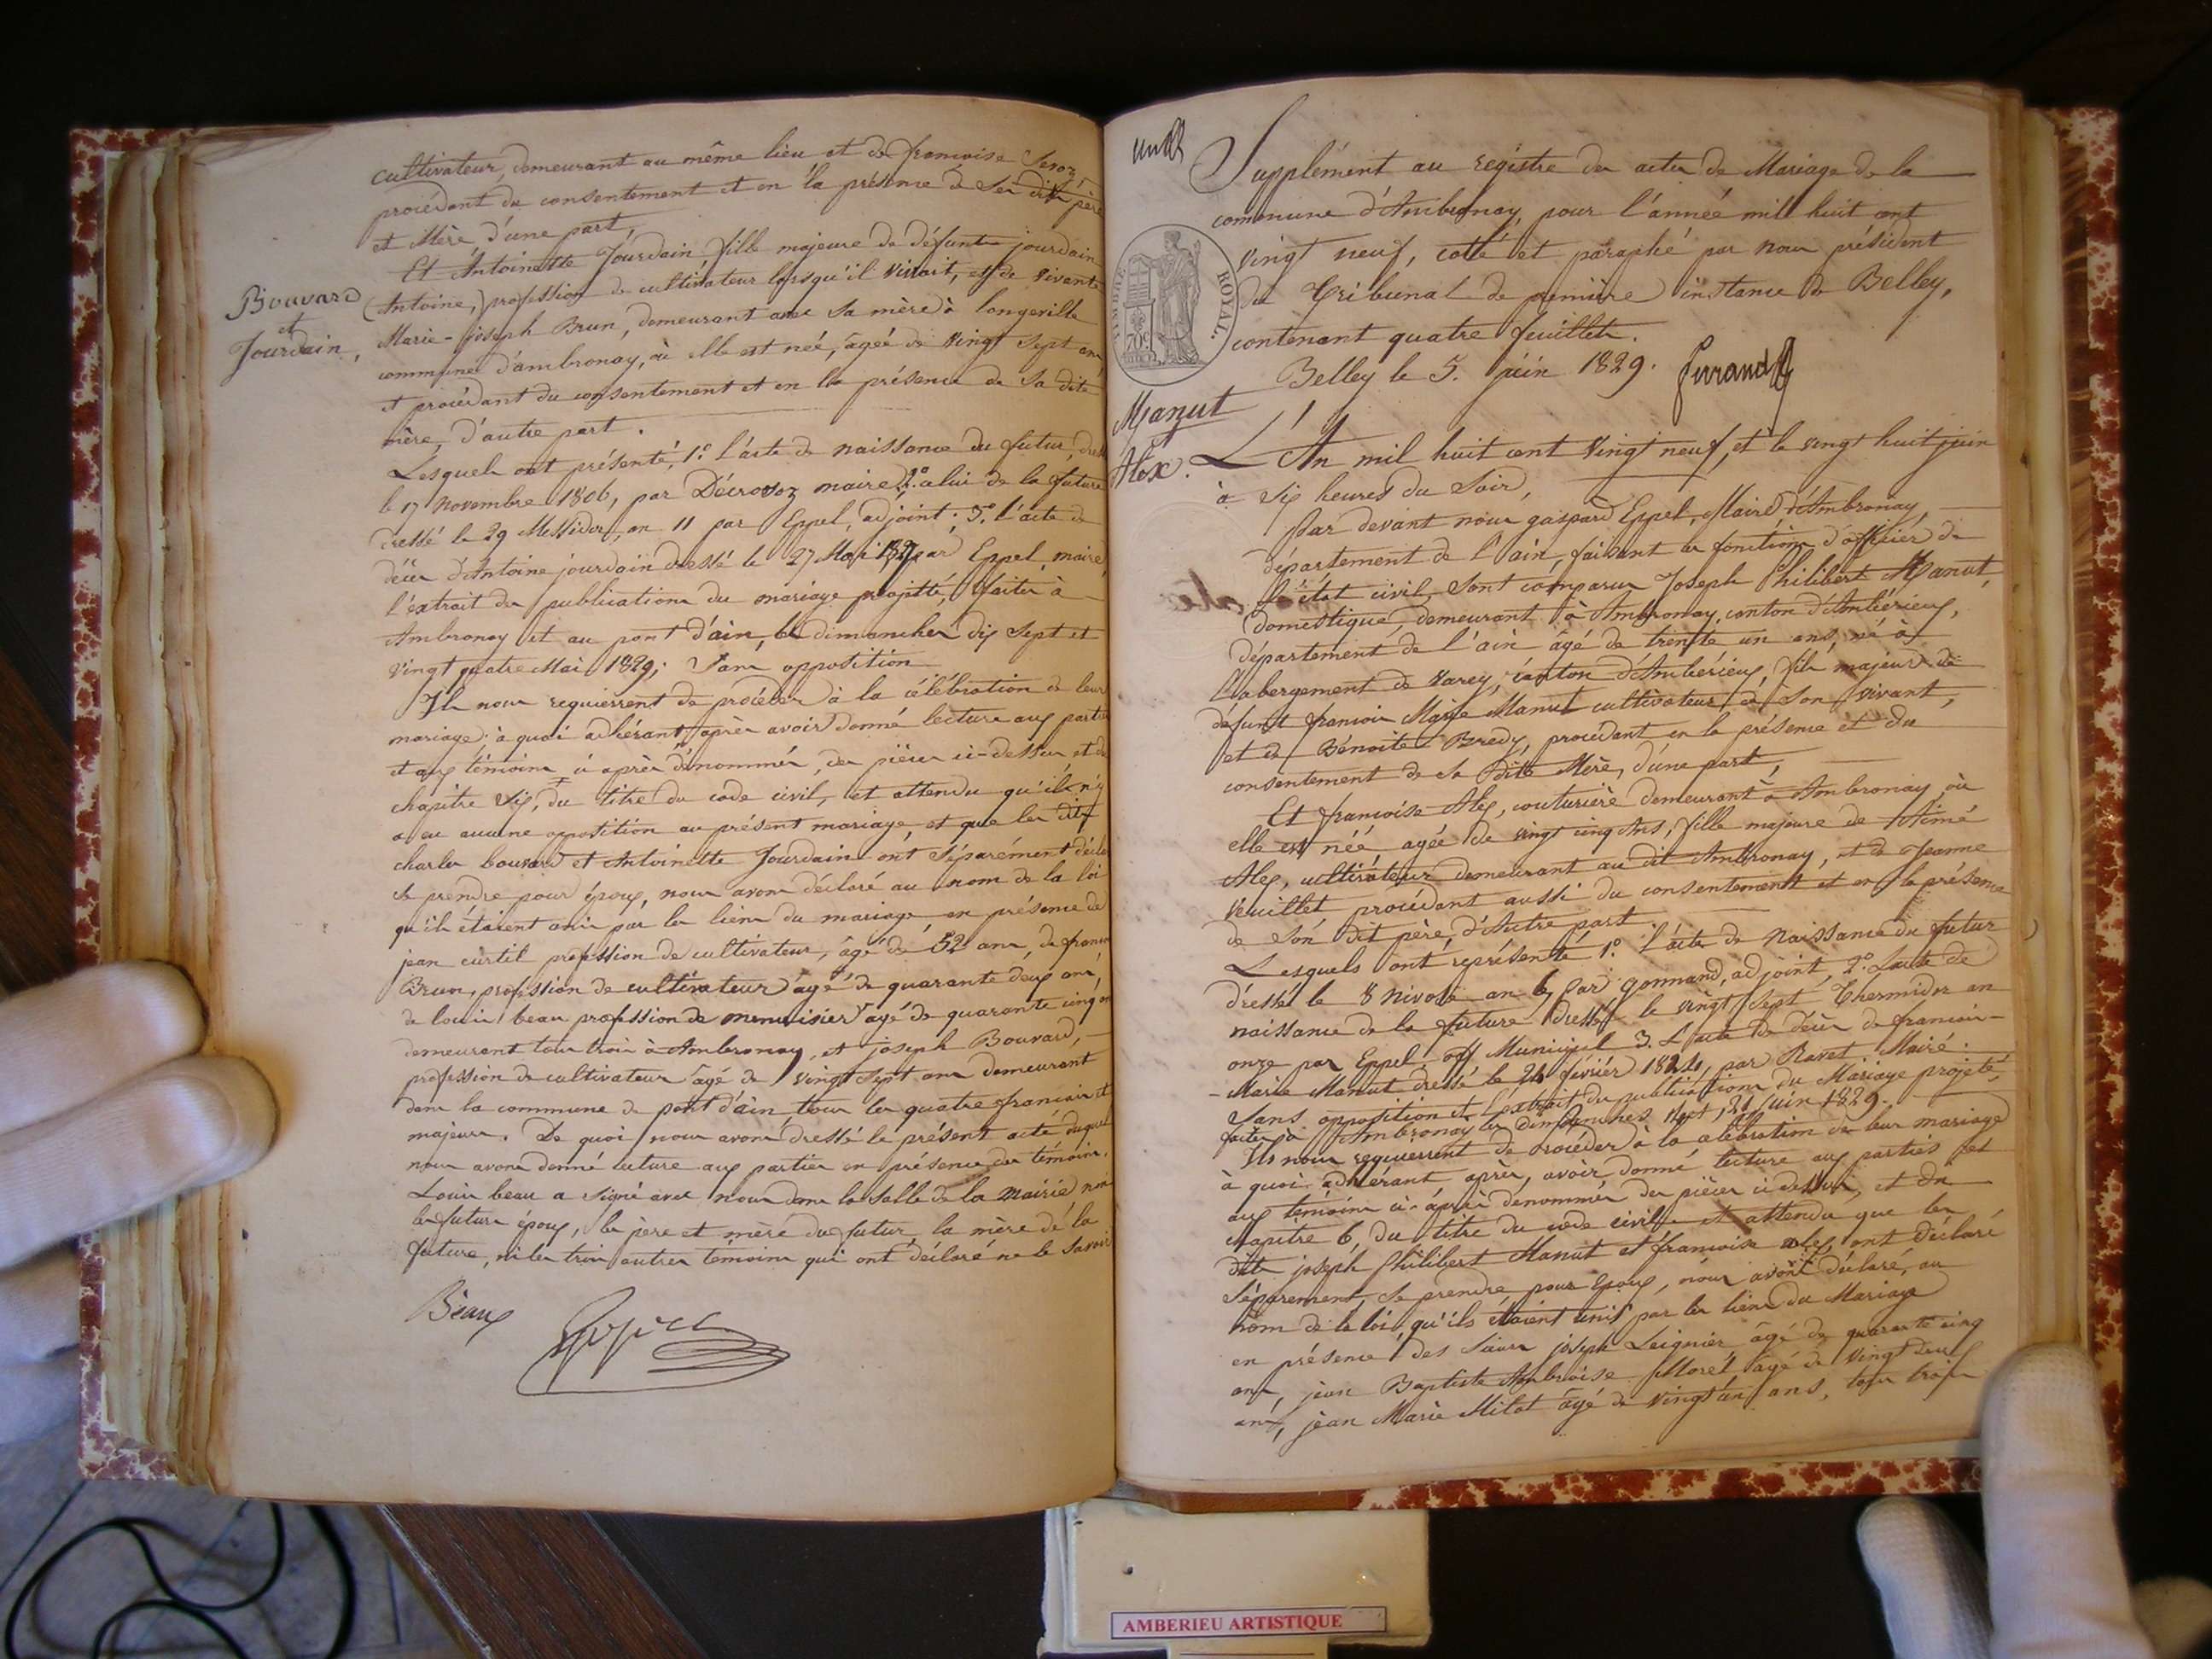 cultivateur, demeurant au même lieu et de françoise Seroz
procédant du consentement et en la présence de ses dits père
et Mère, d'une part,
Et Antoinette Jourdain fille majeure de défunt jourdain
Bouvard
et
Jourdain,
Antoine, profession de cultivateur lorsqu'il vivait, et de vivante
Marie-joseph Brun, demeurant avec sa mère à longeville
commune d'ambronay, où elle est née, âgée de vingt sept ans
et procédant du consentement et en la présence de sa dite
mère, d'autre part.
Lesquels ont présenté, 1º l'acte de naissance du futur, dressé
le 17 novembre 1806, par Décrovoz maire, 2º celui de la future
dressé le 29 Messidor, an 11 par Eppel, adjoint; 3º l'acte de
décès d'Antoine jourdain dressé le 27 Mai par Eppel maire,
l'extrait des publications du mariage projetté, faites à
Ambronay et au pont d'ain, les dimanches dix sept et
vingt quatre Mai 1829; Sans opposition
Ils nous requierrent de procéder à la célébration de leur
mariage; à quoi adhérant, après avoir donné lecture aux parties
et aux témoins ci après dénommés, des pièces ci-dessus, et du
chapitre six, du titre du code civil, et attendu qu'il n'y
a eu aucune opposition au présent mariage, et que les dits
charles bouvard et Antoinette Jourdain ont séparément déclaré
se prendre pour époux, nous avons déclaré au nom de la loi
qu'ils étaient unis par les liens du mariage en présence de
jean curtil profession de cultivateur, âgé de 52 ans, de françois
Brun, profession de cultivateur âgé de quarante deux ans,
de louis beau profession de menuisier âgé de quarante cinq ans
demeurant tous trois à Ambronay, et joseph Bouvard,
profession de cultivateur âgé de vingt sept ans demeurant
dans la commune de pont d'ain tous les quatre français et
majeurs. De quoi nous avons dressé le présent acte duquel
nous avons donné lecture aux parties en présence des témoins.
Louis beau a signé avec nous dans la salle de la mairie non
les futurs époux, les père et mère du futur, la mère de la
future, ni les trois autres témoins qui ont déclaré ne le savoir
Beaux
Supplément au registre des actes de Mariage de la
commune d'Ambronay, pour l'année mil huit cent
vingt neuf, cotté et paraphé par nous président
du Tribunal de première instance de Belley,
contenant quatre feuillets.
Belley le 5. juin 1829. ferrand
TIMBRE ROYAL.
70c
Manut
Alex.
L'An mil huit cent vingt neuf, et le vingt huit juin
à six heures du soir,
Par devant nous gaspard Eppel, Maire d'Ambronay,
département de l'ain, faisant les fonctions d'officier de
l'état civil, sont comparus Joseph Philibert Manut,
domestique, demeurant à Ambronay, canton d'Ambérieux,
département de l'ain âgé de trente un ans, né à
l'abergement de Varey, canton d'Ambérieux, fils majeur de
défunt françois Marie Manut cultivateur de son vivant,
et de Bénoite Bredy, procédant en la présence et du
consentement de sa dite Mère, d'une part,
Et françoise Alex, couturière demeurant à Ambronay, où
elle est née agée de vingt cinq Ans, fille majeure de Aimé
Alex, cultivateur demeurant au dit Ambronay, et de Jeanne
Veuillet procédant aussi du consentement et en la présence
de son dit père, d'Autre part.
Lesquels ont représenté 1º l'acte de naissance du futur
dressé le 8 nivose an 6 par gonnand, adjoint, 2º l'acte de
naissance de la future dressé le vingt sept Thermidor an
onze par Eppel off Municipal 3. L'acte de décès de françois-
-Marie Manut dressé le 24 février 1824, par Ravet Maire.
Sans opposition et l'extrait des publications du Mariage projeté,
faites à Ambronay les dimanches sept, 21 juin 1829.
Ils nous requierrent de procéder à la célébration de leur mariage
à quoi adhérant après, avoir donné lecture aux parties et
aux témoins ci-après dénommés des pièces ci dessus, et du
chapitre 6 du titre du code civil et attendu que les
dits joseph Philibert Manut et françoise alex, ont déclaré
séparement, se prendre pour époux, nous avons déclaré, au
nom de la loi, qu'ils étaient unis par les liens du Mariage
en présence des sieurs joseph Leignier âgé de quarante cinq
ans, jean Baptiste Ambroise Morel âgé de vingt deux
ans, jean Marie Milat âgé de vingt un ans, tous trois
AMBERIEU ARTISTIQUE